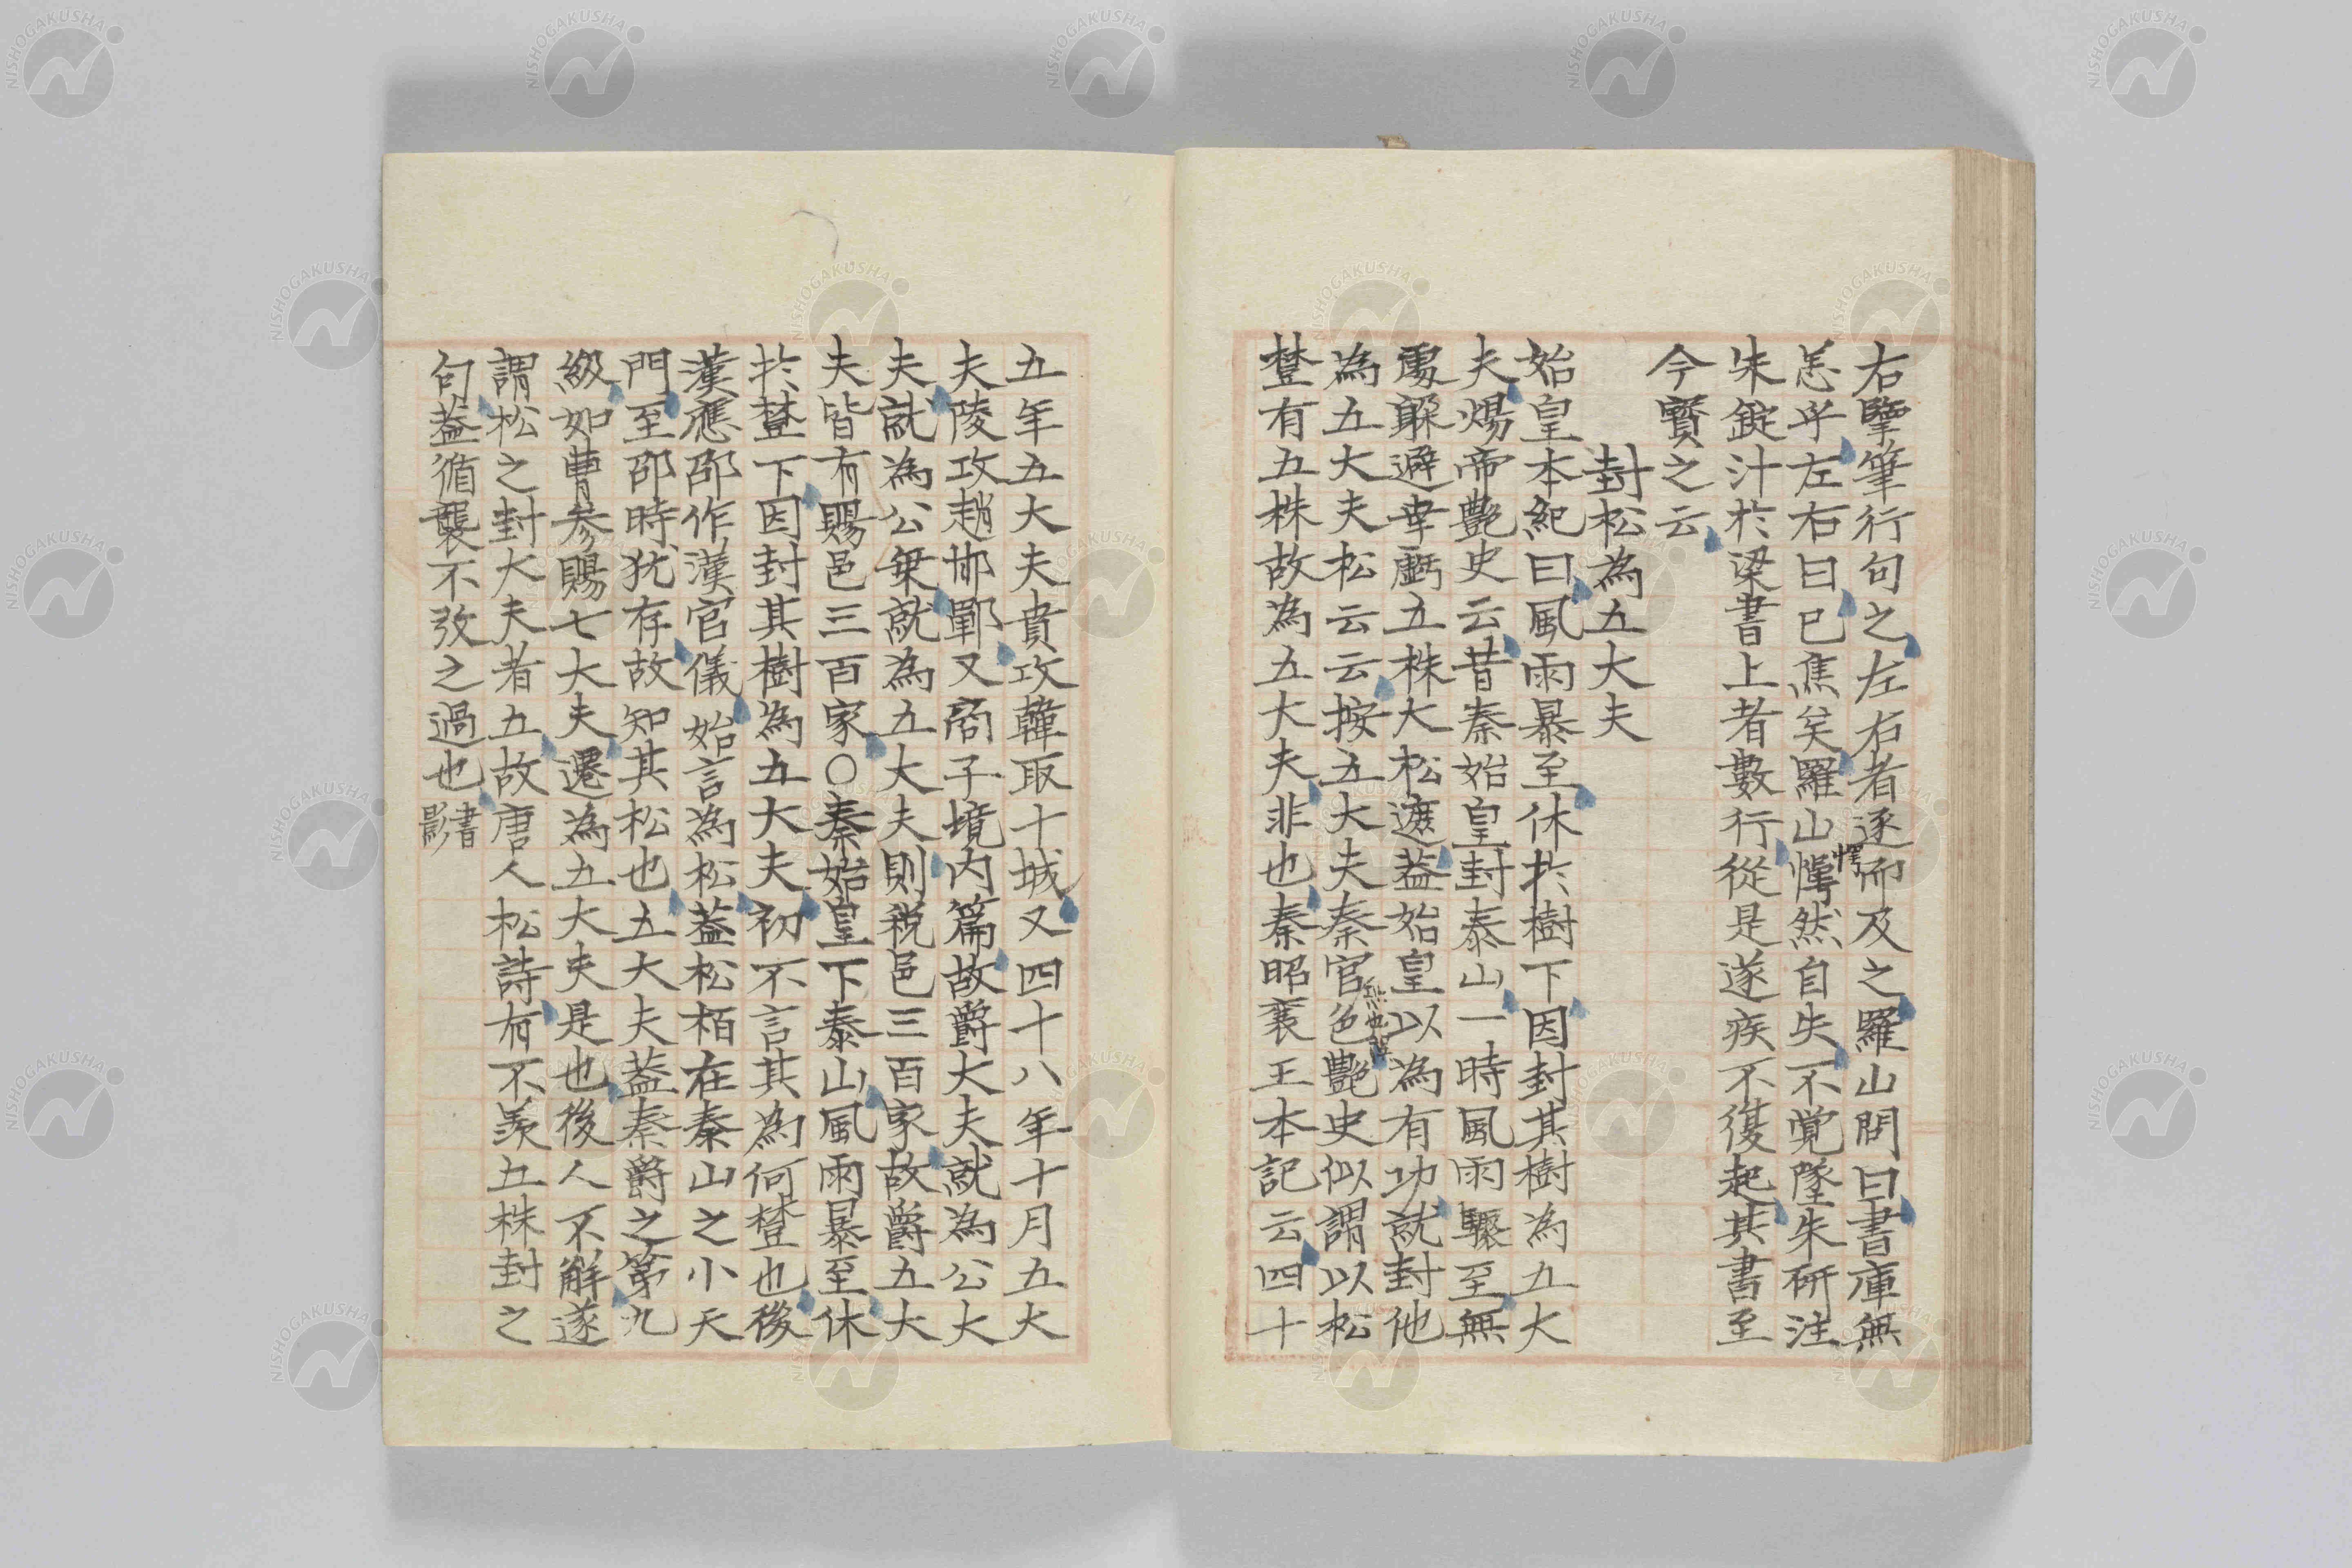 右擥筆行句之左右者逐而及之羅山問曰書庫無
恙乎左右曰已焦矣羅山愕然自失不覚墜朱研注
愕
朱錠汁於梁書上者數行從是遂疾不復起其書至
今寳之云
封松為五大夫
始皇本紀曰風雨暴至休於樹下因封其樹為五大
夫煬帝艷史云昔秦始皇封泰山一時風雨驟至無
處躲避幸虧五株大松遮蓋始皇以為有功就封他
為五大夫松云云按五大夫秦官色艷史似謂以松
樹有五株故為五大夫非也秦昭襄王本記云四十
五年五大夫賁攻韓取十城又四十八年十月五大
夫陵攻趙邯鄲又商子境内篇故爵大夫就為公大
夫就為公乗就為五大夫則税邑三百家故爵五大
夫皆有賜邑三百家○秦始皇下泰山風雨暴至休
於樹下因封其樹為五大夫初不言其為何樹也後
漢應邵作漢官儀始言為松蓋松栢在秦山之小天
門至邵時犹存故知其松也五大夫蓋秦爵之第九
級如曹参賜七大夫遷為五大夫是也後人不解遂
謂松之封大夫者五故唐人松詩有不羨五株封之
句蓋循襲不攷之過也影書